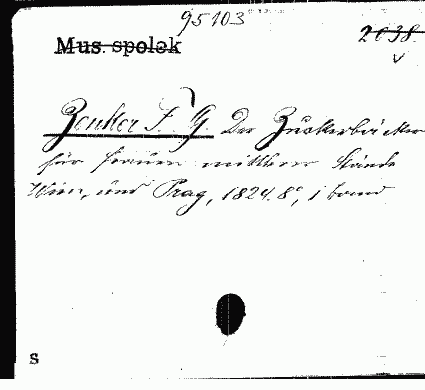 95103
Mus. spolek
2038.
v
Zenker F. G. Der Zuckerbäcker
für Frauen mittlerer Stände
Wien, und Prag, 1824. 8°, 1 band
S